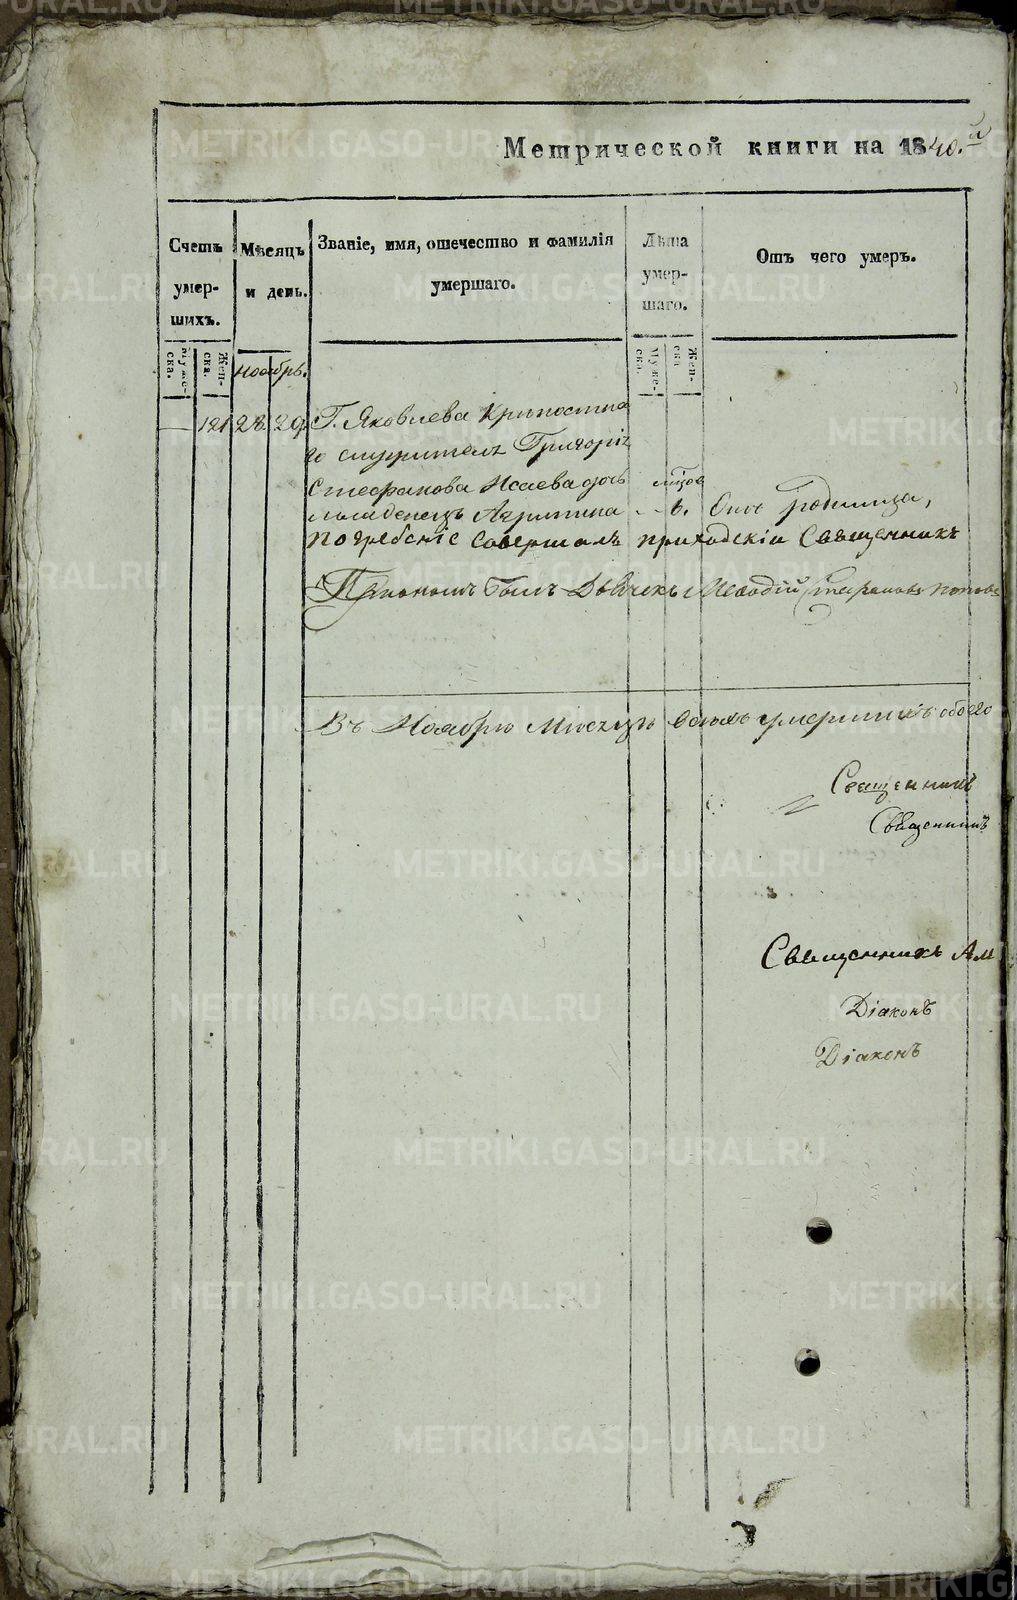 Метрической книги на 1840.й
Счетъ умер- шихъ.
Мѣсяцъ и день.
Званіе, имя, отчество и фамилія умершаго.
Лѣта умер- шаго.
Отъ чего умеръ.
Муже- ска.
Жен- ска.
Ноябрь.
Муже- ска.
Жен- ска.
— 121 28. 29. Г. Яковлева Крѣпостна
го служителя Григорія
Стефанова Исаева дочь
младенецъ Агрипина 6. Отъ родимца,
погребеніе совершалъ приходскій Священникъ
При ономъ былъ Дьячекъ Меѳодій Стефановъ Поповъ
Въ Ноябрѣ Мѣсяцѣ всѣхъ умершихъ обоего
Священникъ
Священникъ
Священникъ
Діаконъ
Діаконъ
METRIKI.GASO-URAL.RU